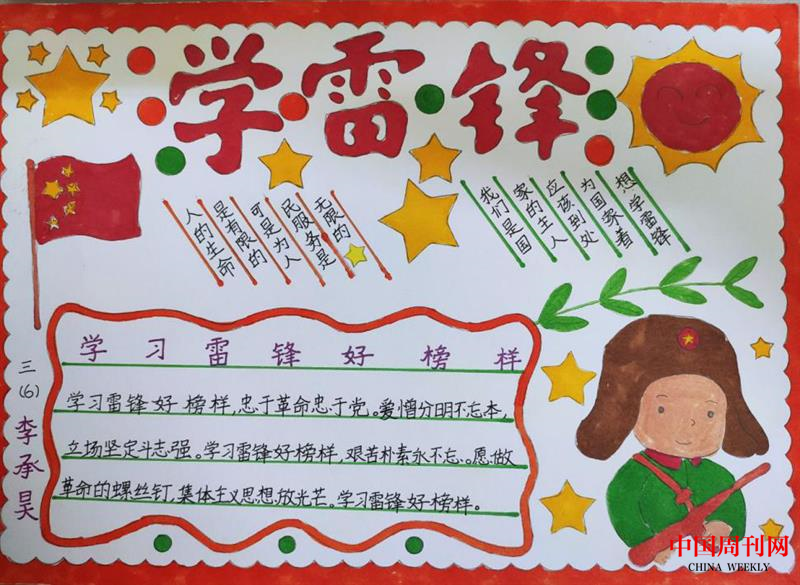 学雷锋
人的生命
是有限的
可是为人
民服务是
无限的
我们是国
家的主人
应孩到处
为国家着
想学雷锋
学习雷锋好榜样
学习雷锋好榜样,忠于革命忠于党。爱憎分明不忘本,
立场坚定斗志强。学习雷锋好榜样,艰苦朴素永不忘。愿做
革命的螺丝钉,集体主义思想放光芒。学习雷锋好榜样。
三(6)李承昊
中国周刊网
CHINA WEEKLY